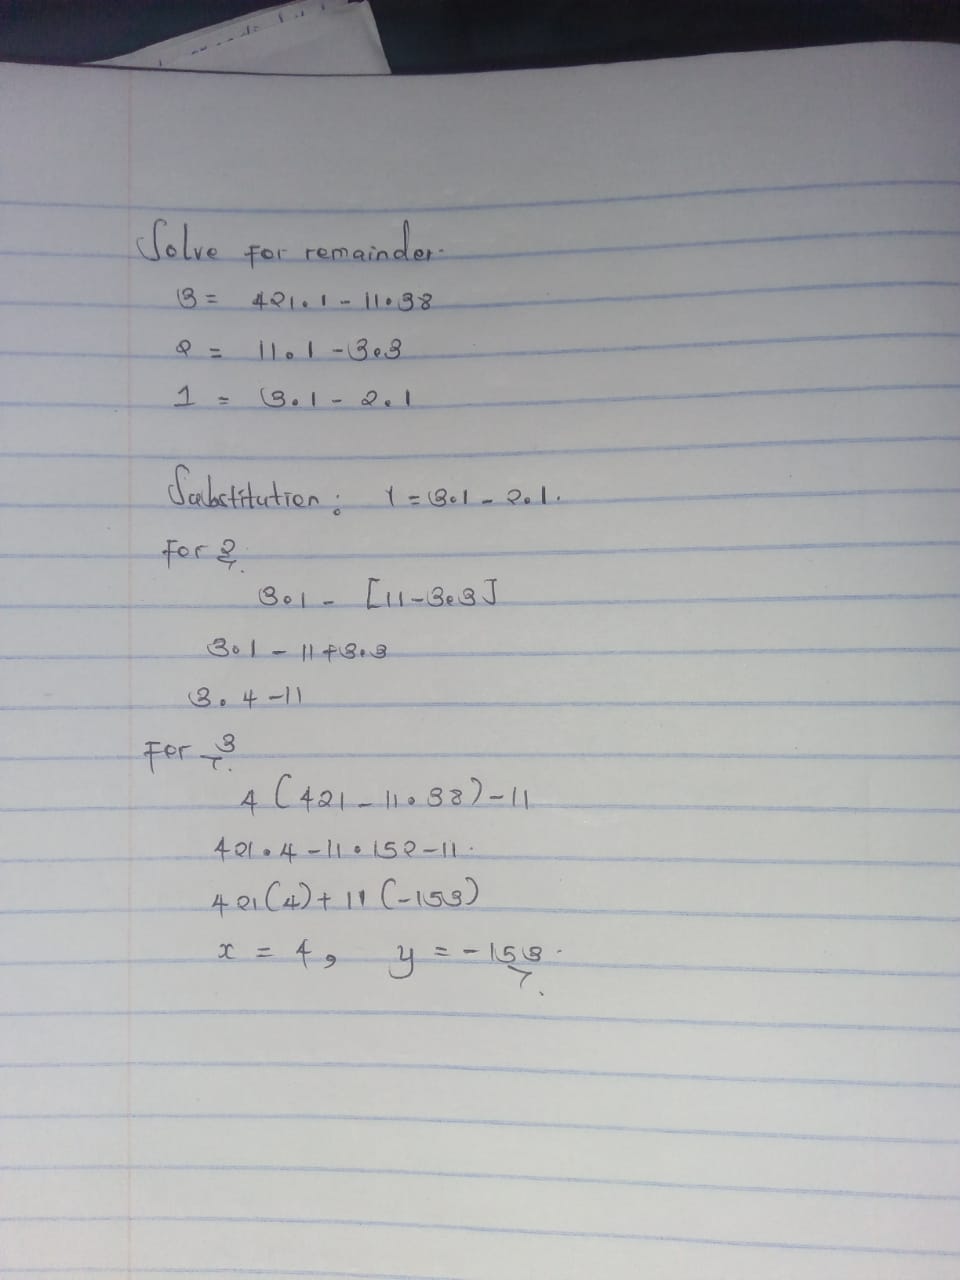 Solve for remainder.
3 = 421.1 - 11.38
2 = 11.1 - 3.3
1 = 3.1 - 2.1
Substitution: 1 = 3.1 - 2.1.
For 2
3.1 - [11-3.3]
3.1 - 11 + 3.3
3.4 - 11
For 3
4(421 - 11.38) - 11
421.4 - 11.152 - 11.
421(4) + 11(-153)
x = 4, y = -153.